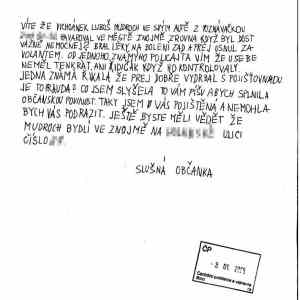 VÍTE ŽE VYCHÁNEK LUBOŠ MUDROCH VE SVÝM AUTĚ Z POZNÁVAČKOU
HAVAROVAL VE MĚSTĚ ZNOJMĚ ZROVNA KDYŽ BYL DOST
VÁŽNE NEMOCNEJ? BRAL LÉKY NA BOLENÍ ZAD A PREJ USNUL ZA
VOLANTEM. OD JEDNOHO ZNÁMÝHO POLICAJTA VÍM ŽE U SEBE
NEMĚL TENKRÁT, ANI ŘIDIČÁK KDYŽ HO KONTROLOVALY
JEDNA ZNÁMÁ ŘÍKALA ŽE PREJ DOBŘE VYDĚLAL S POJIŠŤOVNAU
JE TO PRAUDA? CO JSEM SLYŠELA TO VÁM PÍŠU ABYCH SPLNILA
OBČANSKOU POVINOST. TAKY JSEM U VÁS POJIŠTĚNÁ A NEMOHLA
BYCH VÁS PODRAZIT. JEŠTĚ BYSTE MĚLI VĚDĚT ŽE
MUDROCH BYDLÍ VE ZNOJMĚ NA ULICI
ČÍSLO
SLUŠNÁ OBČANKA
ČP